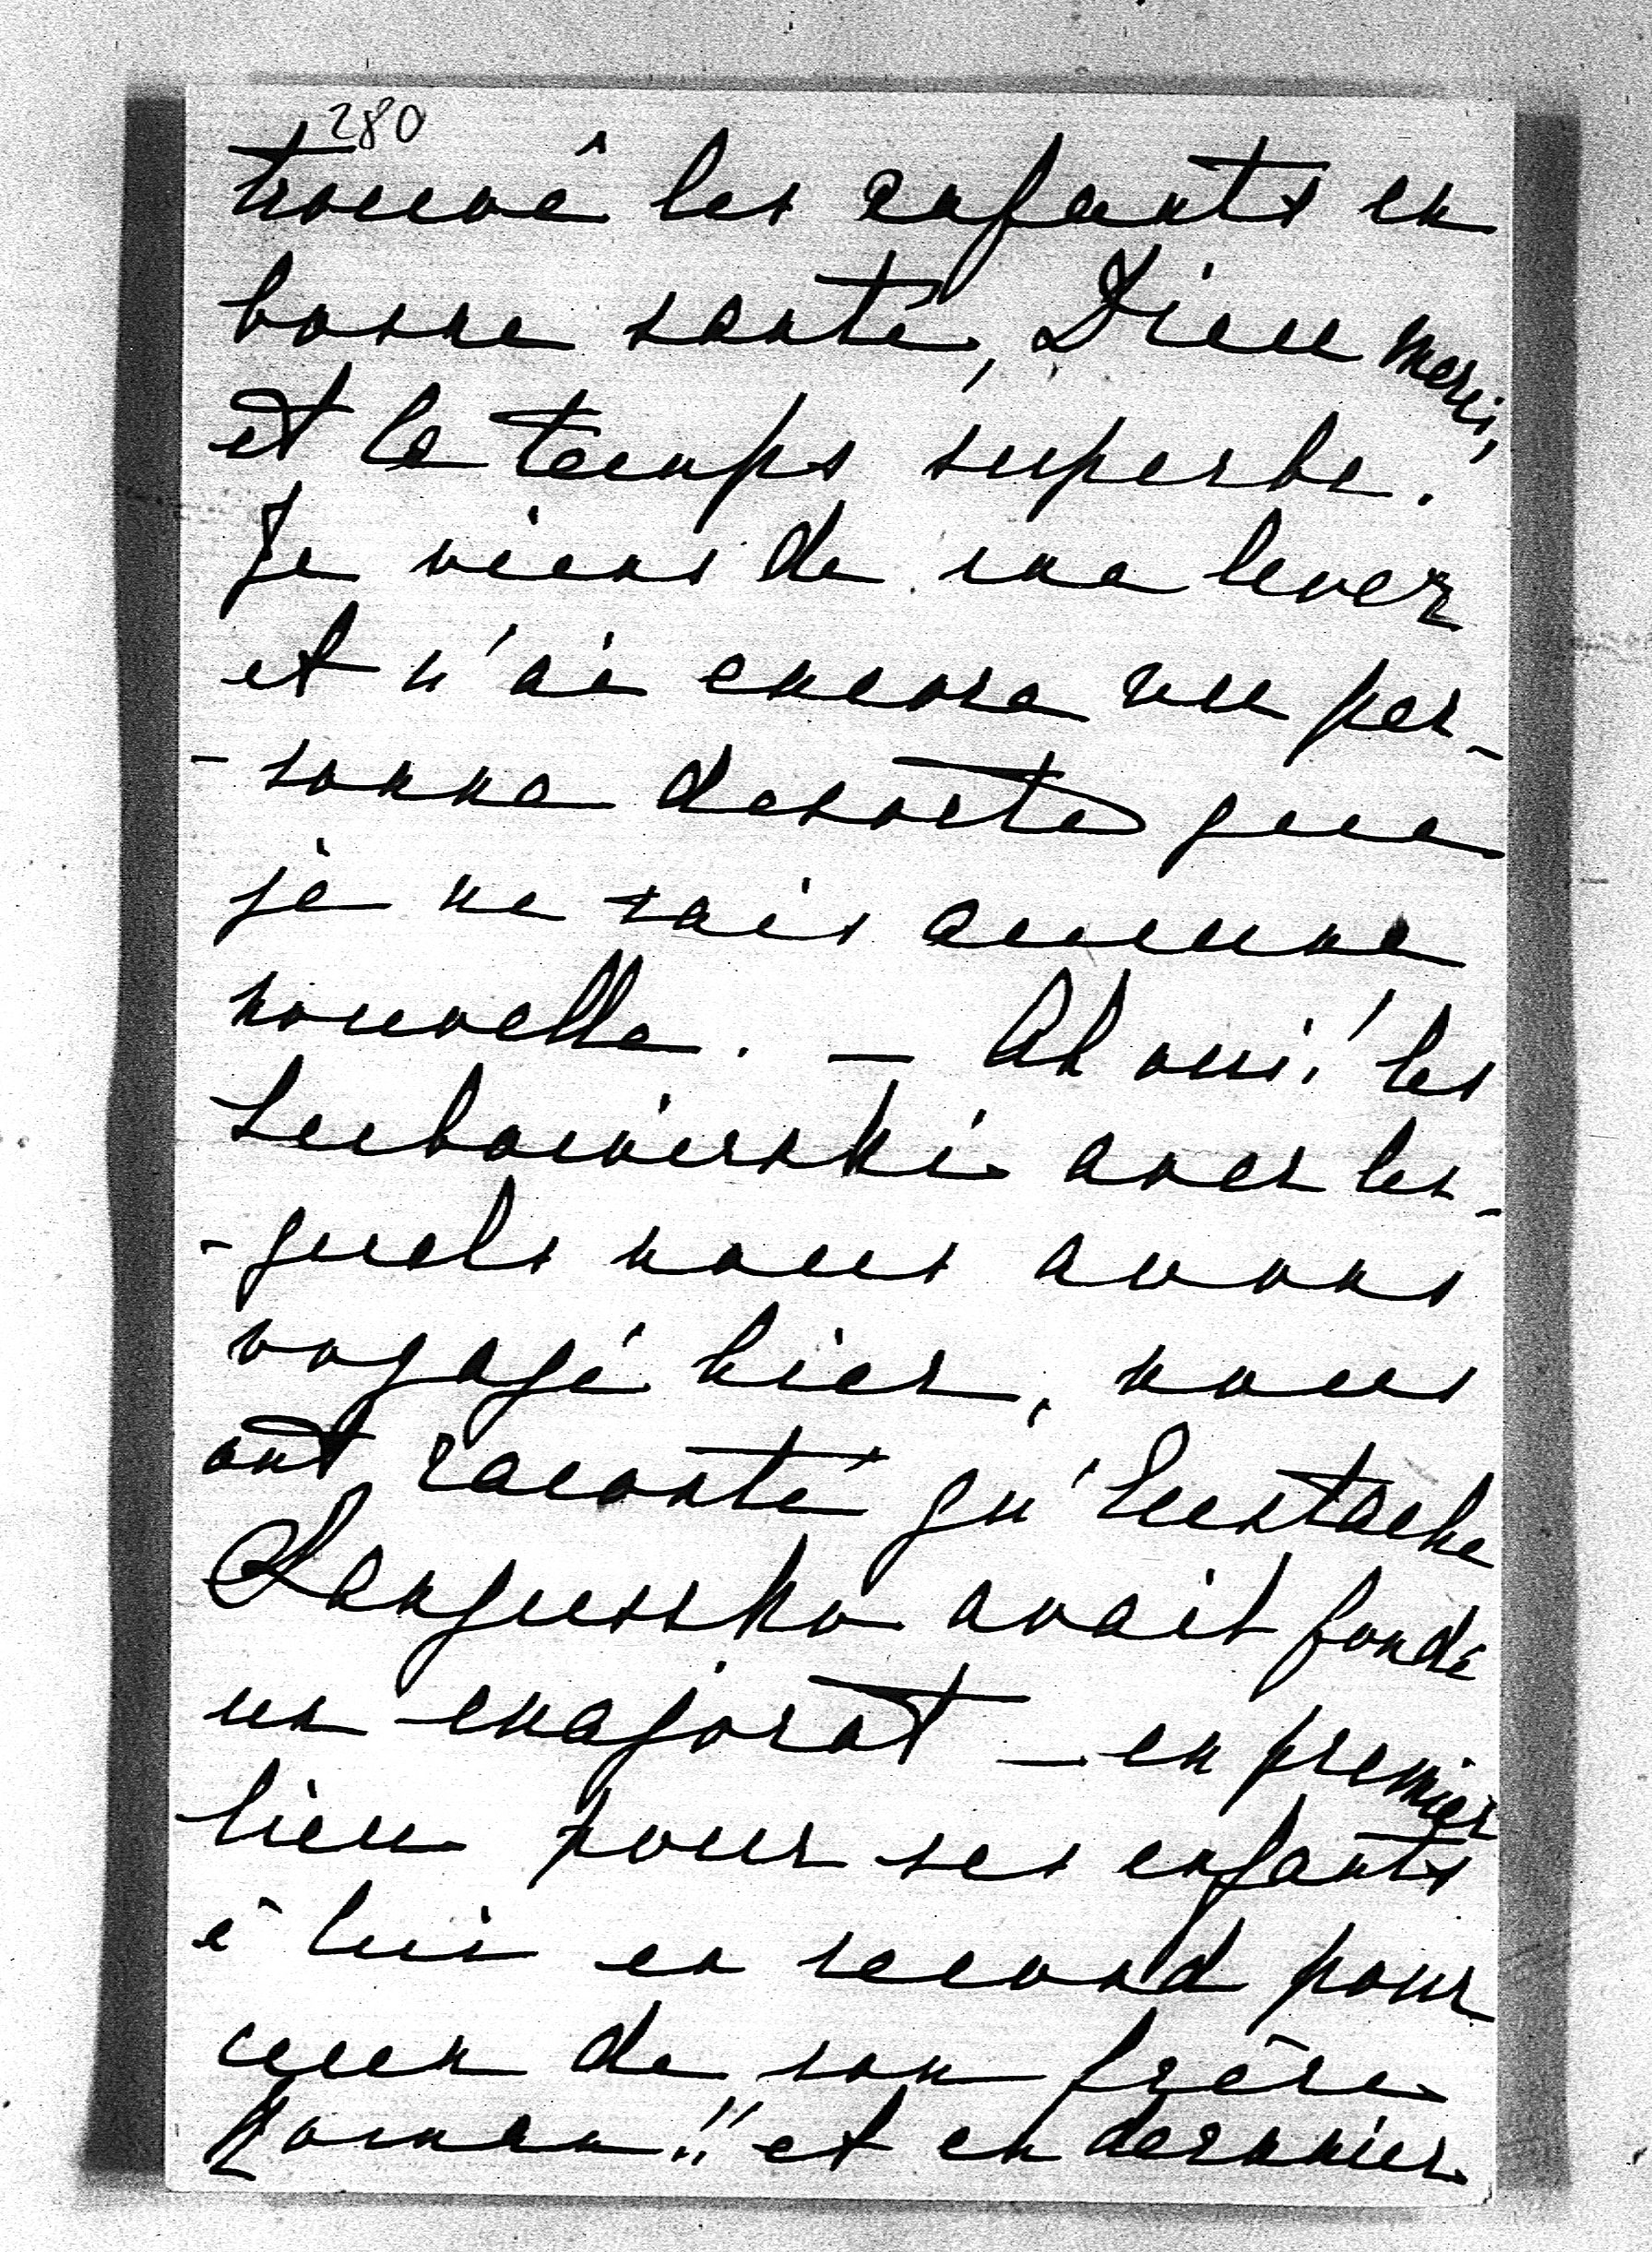 280
trouvé les enfants en
bonne santé, Dieu merci,
et le temps superbe.
Je viens de me lever
et n'ai encore vu per-
-sonne desorte que
je ne sais aucune
nouvelle. — Ah oui! les
Lubomirski avec les-
-quels nous avons
voyagé hier, nous
ont raconté qu'Eustache
Sangussko avait fondé
un majorat — en premier
lieu pour ses enfants
à lui en second pour
ceux de son frère
Roman!! et en dernier